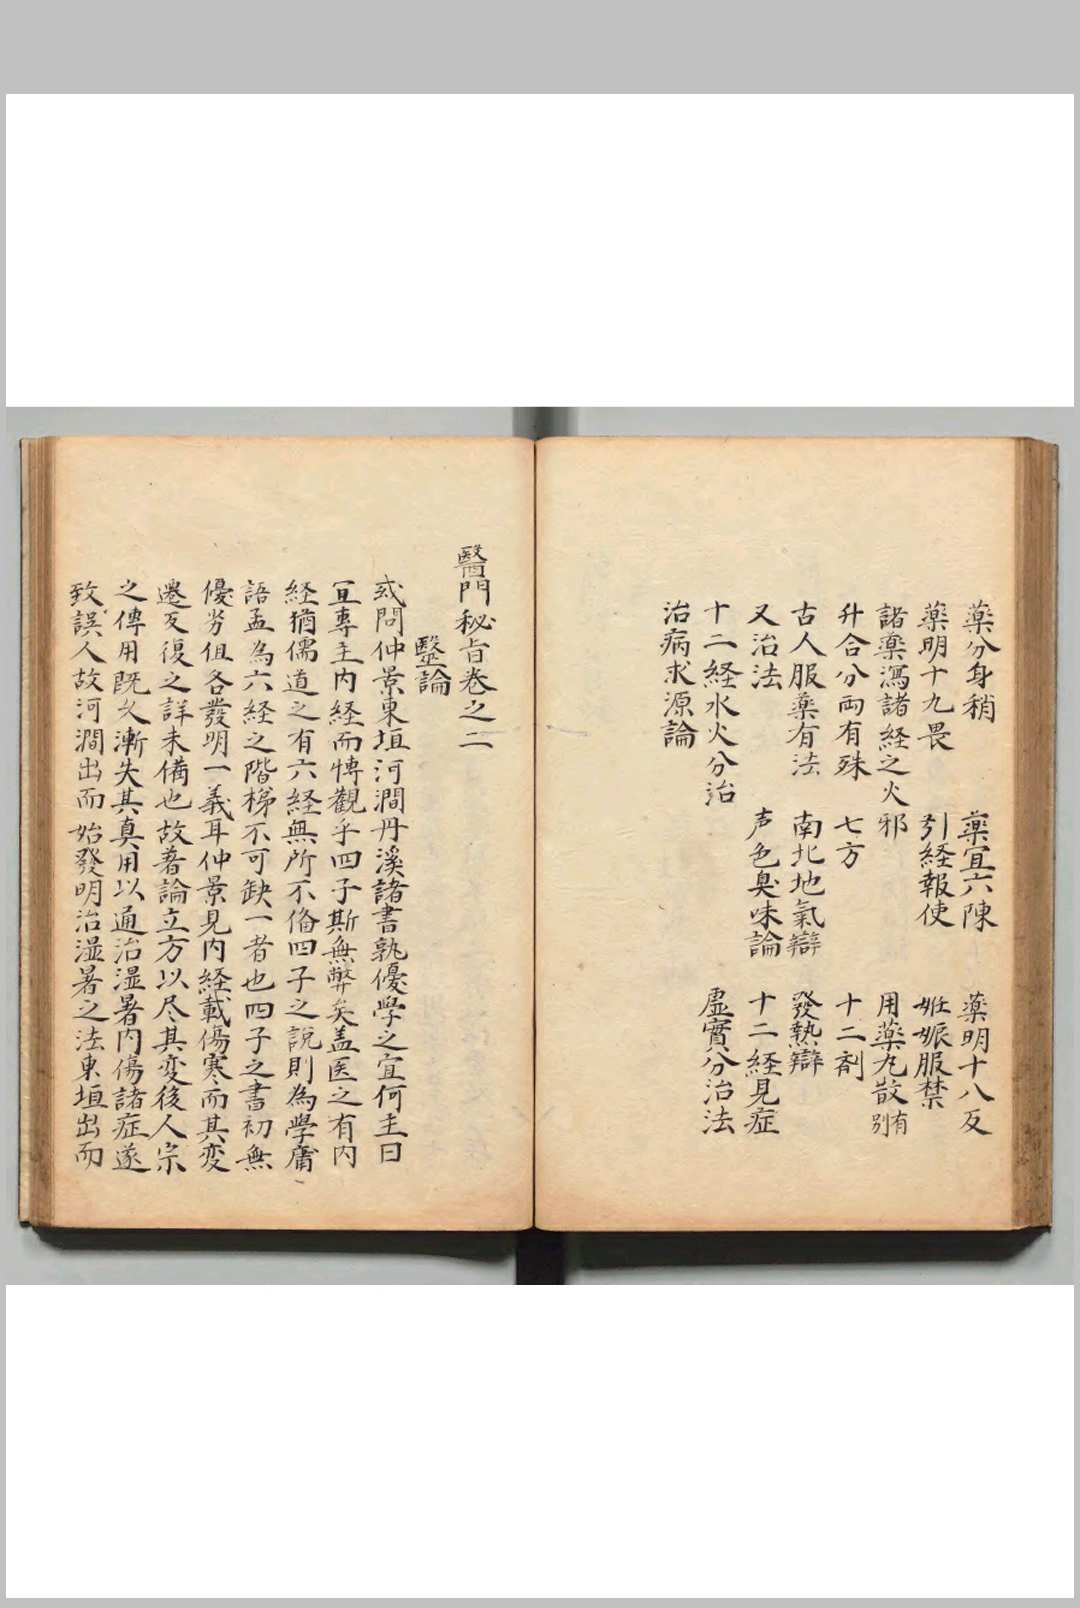 薬分身稍　薬宜六陳　薬明十八反
薬明十九畏　引経報使　妊娠服禁
諸薬瀉諸経之火邪　用薬丸散有別
升合分両有殊　七方　十二剤
古人服薬有法　南北地氣辯　發熱辯
又治法　声色臭味論　十二経見症
十二経水火分治　虚實分治法
治病求源論
醫門秘旨巻之二
毉論
或問仲景東垣河澗丹溪諸書孰優學之宜何主曰
宜專主内経而博觀乎四子斯無弊矣盖医之有内
経猶儒道之有六経無所不俻四子之說則為學庸
語孟為六経之階梯不可缺一者也四子之書初無
優劣但各發明一義耳仲景見内経載傷寒而其变
遷反復之詳未備也故著論立方以尽其变後人宗
之傳用既久漸失其真用以通治湿暑内傷諸症遂
致誤人故河澗出而始發明治湿暑之法東垣出而